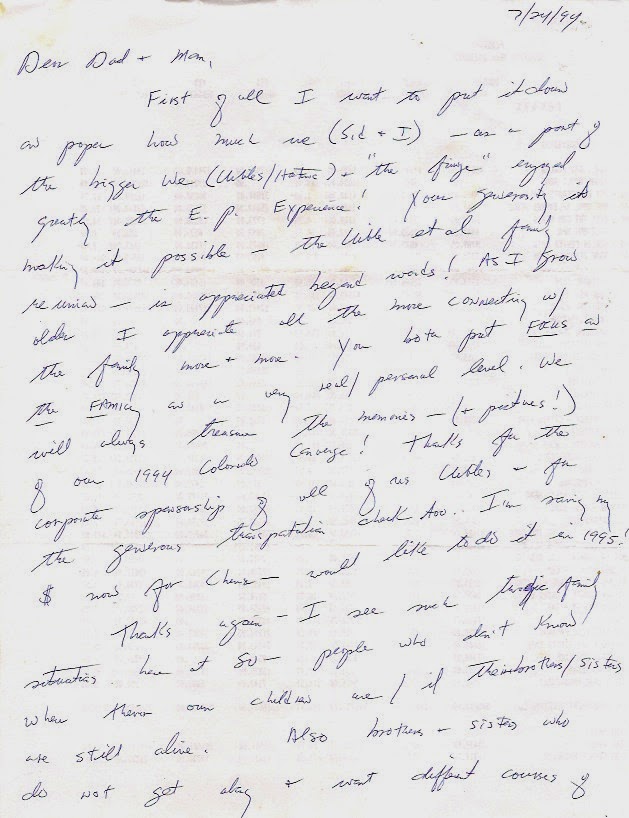 7/24/94
Dear Dad + Mom,
First of all I want to put it down
on paper how much we (Sid + I) — as a part of
the bigger We (Uibles/) + "the fringe" enjoyed
greatly the E. P. Experience! Your generosity in
making it possible — the Uible et al family
reunion — is appreciated beyond words! As I grow
older I appreciate all the more connecting w/
the family more + more. You both put Focus on
the FAMILY on a very real/personal level. We
will always treasure the memories — (+ pictures!)
of our 1994 Colorado Converge! Thanks for the
corporate sponsorship of all of us Uibles + for
the generous transportation check too.. I'm saving my
$ now for — would like to do it in 1995!
Thanks again — I see such tragic family
situations here at — people who don't know
where their own children are / if their brothers/sisters
are still alive. Also brothers + sisters who
do not get along + want different courses of